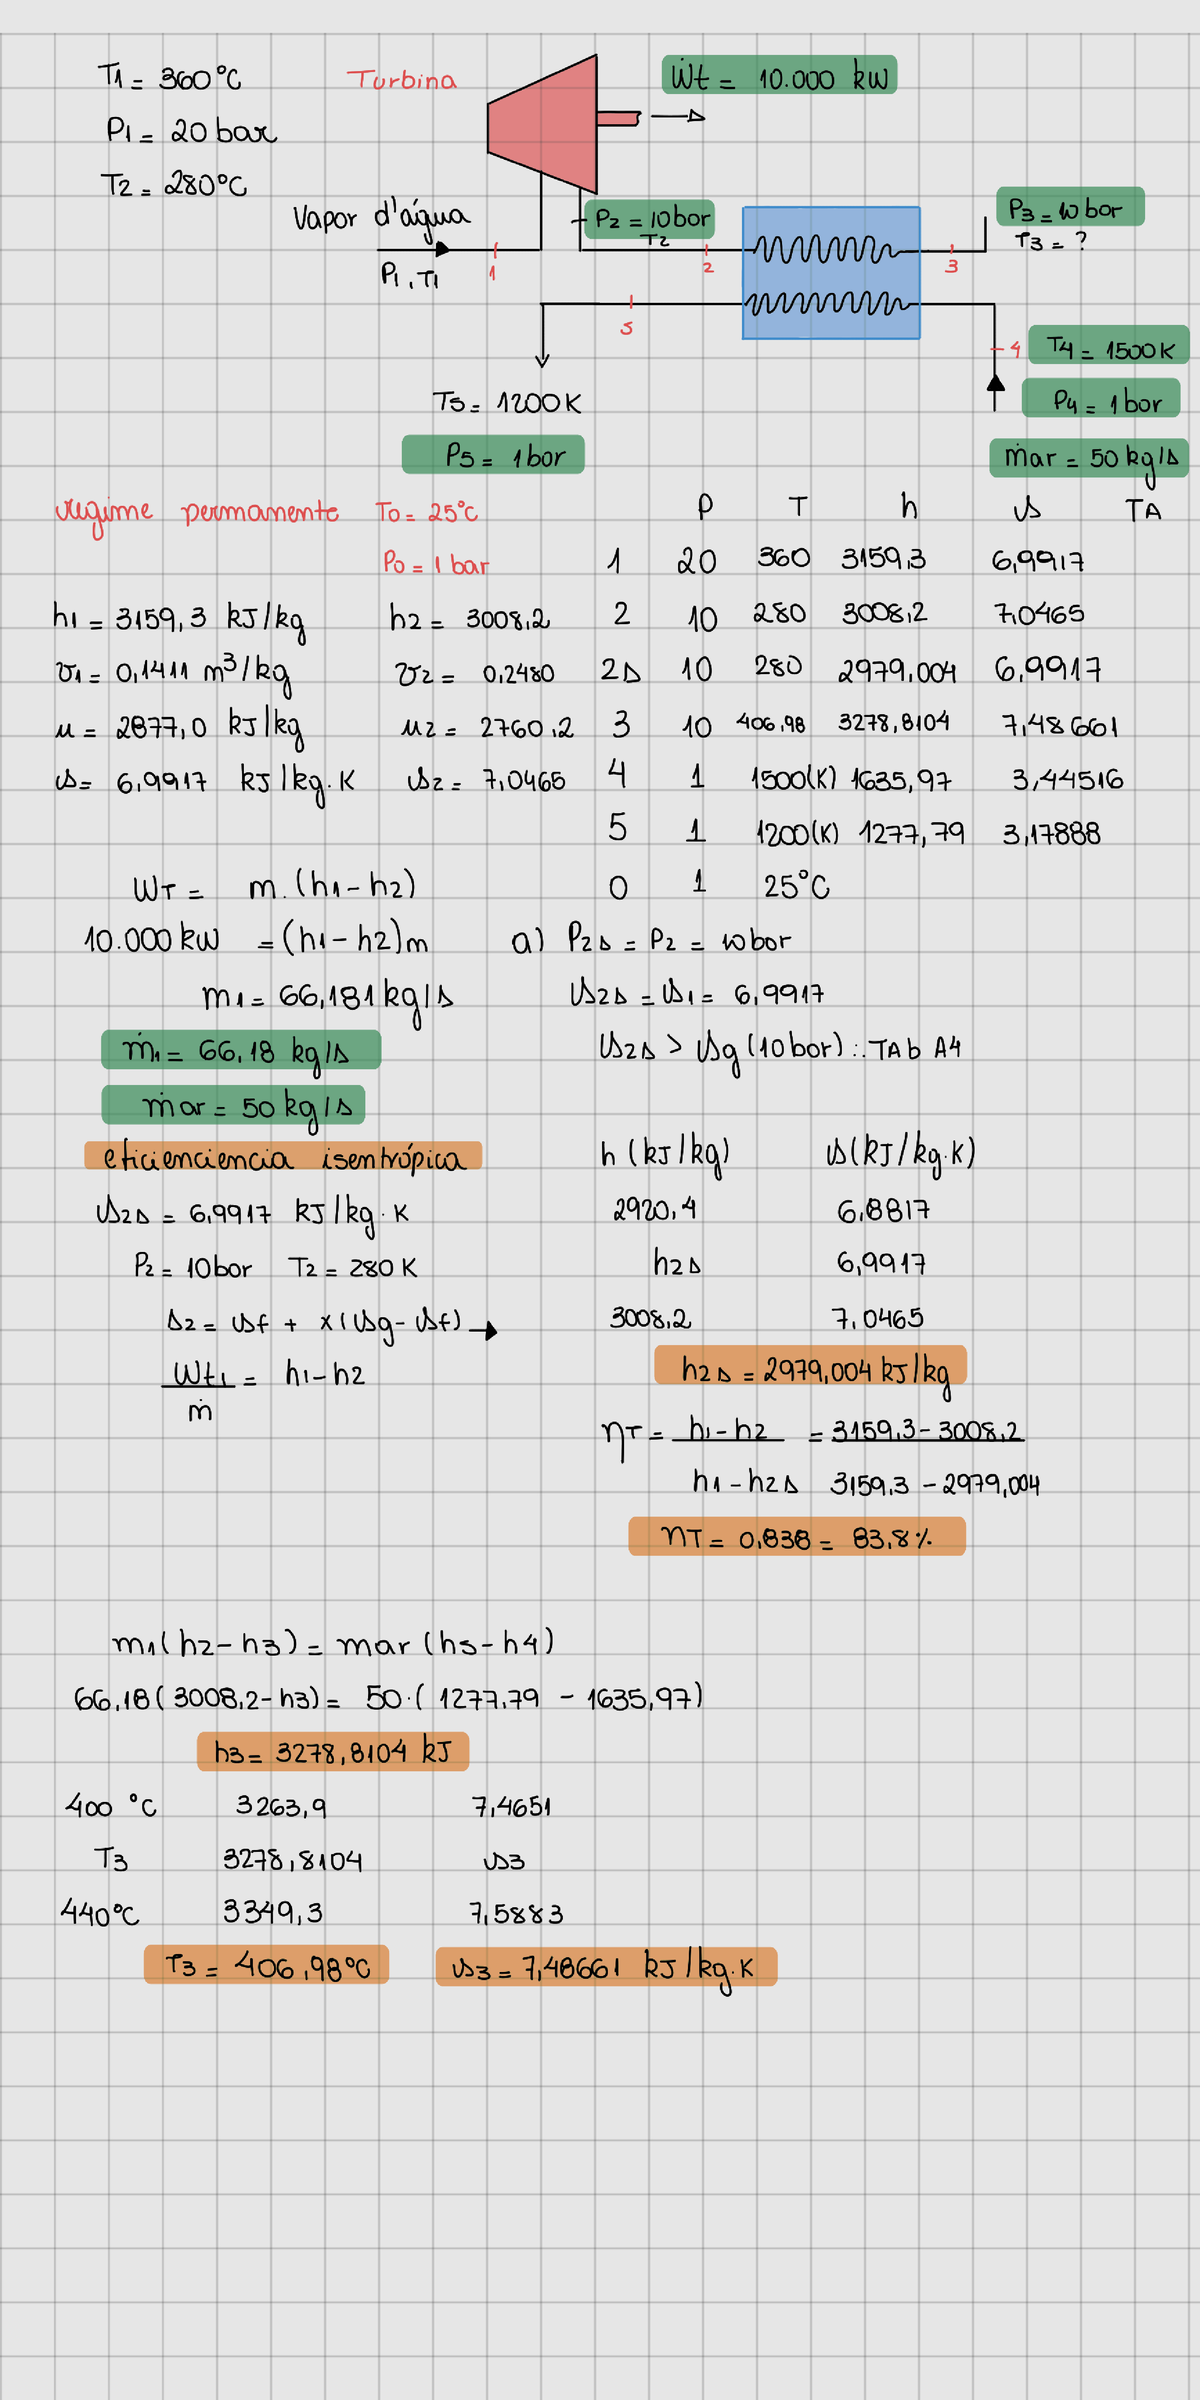 T1 = 360°C
Turbina
Ẇt = 10.000 kW
P1 = 20 bar
T2 = 280°C
Vapor d'água
P2 = 10bar
T2
P3 = 10bar
T3 = ?
P1, T1
1
2
3
5
4
T4 = 1500K
T5 = 1200K
P4 = 1bar
P5 = 1bar
ṁar = 50 kg/s
regime permanente T0 = 25°C
P0 = 1 bar
P T h s TA
1 20 360 3159,3 6,9917
2 10 280 3008,2 7,0465
2s 10 280 2979,004 6,9917
3 10 406,98 3278,8104 7,48661
4 1 1500(K) 1635,97 3,44516
5 1 1200(K) 1277,79 3,17888
0 1 25°C
h1 = 3159,3 kJ/kg h2 = 3008,2
v1 = 0,1411 m³/kg v2 = 0,2480
u = 2877,0 kJ/kg u2 = 2760,2
s = 6,9917 kJ/kg.K s2 = 7,0465
WT = m.(h1-h2)
10.000kW = (h1-h2)m
m1 = 66,181kg/s
ṁ1 = 66,18 kg/s
ṁar = 50kg/s
a) P2s = P2 = 10bar
s2s = s1 = 6,9917
s2s > sg(10bar) ∴ TAb A4
eficienciencia isentrópica
s2s = 6,9917 kJ/kg.K
P2 = 10bar T2 = 280K
s2 = sf + x(sg-sf) →
Wt1/ṁ = h1-h2
h (kJ/kg) s(kJ/kg.K)
2920,4 6,8817
h2s 6,9917
3008,2 7,0465
h2s = 2979,004 kJ/kg
ηT = h1-h2 = 3159,3-3008,2
h1-h2s 3159,3-2979,004
ηT = 0,838 = 83,8%
m1(h2-h3) = mar(h5-h4)
66,18(3008,2-h3) = 50.(1277,79 - 1635,97)
h3 = 3278,8104 kJ
400 °C 3263,9 7,4651
T3 3278,8104 s3
440°C 3349,3 7,5883
T3 = 406,98°C s3 = 7,48661 kJ/kg.K